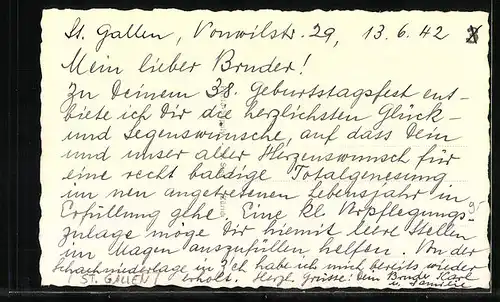 St. Gallen, Vonwilstr. 29, 13.6.42
Mein lieber Bruder!
Zu Deinem 38. Geburtstagsfest ent-
biete ich Dir die herzlichsten Glück-
und Segenswünsche, auf dass Dein
und unser aller Herzenswunsch für
eine recht baldige Totalgenesung
im neu angetretenen Lebensjahr in
Erfüllung gehe. Eine kl. Verpflegungs-
zulage möge Dir hiemit leere Stellen
im Magen auszufüllen helfen. Von der
Schachniederlage in Z'ch habe ich mich bereits wieder
erholt. Herzl. Grüsse! Dein Bruder Karl
u. Familie
(ST. GALLEN)